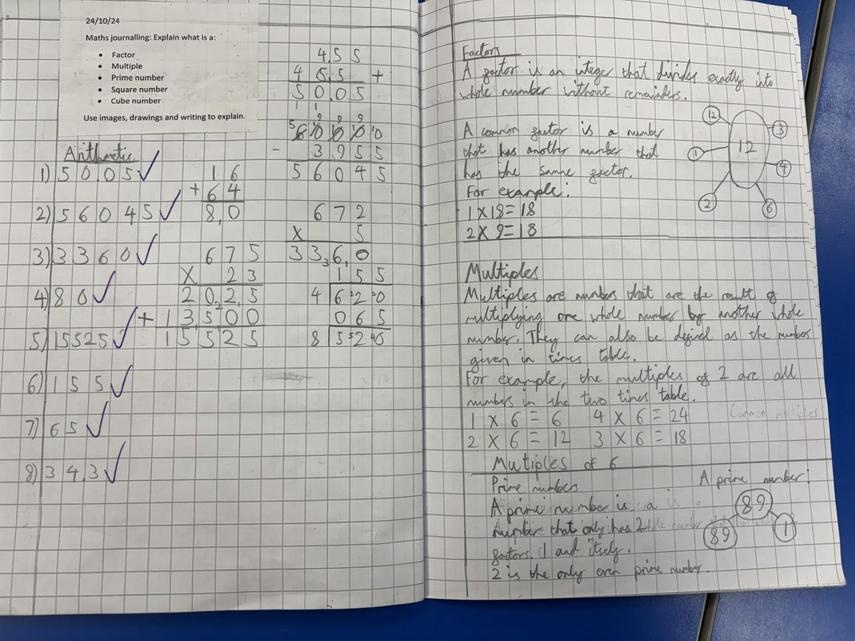 24/10/24
Maths journalling: Explain what is a:
• Factor
• Multiple
• Prime number
• Square number
• Cube number
Use images, drawings and writing to explain.
Arithmetic
1) 50.05
2) 56045
3) 3360
4) 80
5) 15525
6) 155
7) 65
8) 343
16
+ 64
80
675
X 23
2025
+ 13500
15525
4.55
45.5 +
50.05
- 3955
56045
672
X 5
3360
155
4 620
065
8 520
Factors
A factor is an integer that divides exactly into
whole number without remainders.
A common factor is a number
that has another number that
has the same factor.
For example:
1 X 18 = 18
2 X 9 = 18
12
12
3
1
4
2
6
Multiples
Multiples are numbers that are the result of
multiplying one whole number by another whole
number. They can also be defined as the numbers
given in times table.
For example, the multiples of 2 are all
numbers in the two times table.
1 X 6 = 6 4 X 6 = 24
2 X 6 = 12 3 X 6 = 18
Mutiples of 6
Prime numbers
A prime number is a
number that only has 2
factors, 1 and itself.
2 is the only even prime number.
A prime number:
89
89
1